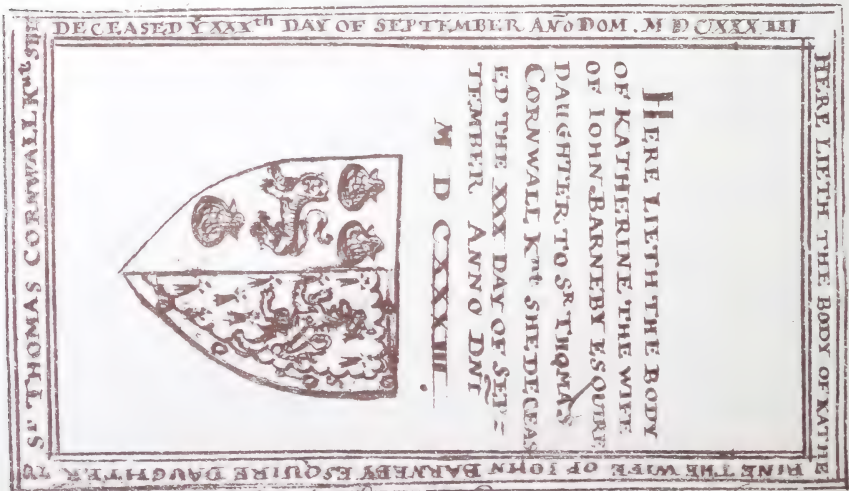 HERE LIETH THE BODY OF KATHE
RINE THE WIFE OF IOHN BARNEBY ESQUIRE DAUGHTER TO
Sr THOMAS CORNWALL Knt SHE
DECEASED Ye XXXth DAY OF SEPTEMBER AÑO DOM. M D CXXX III
HERE LIETH THE BODY
OF KATHERINE THE WIFE
OF IOHN BARNEBY ESQUIRE
DAUGHTER TO Sr THOMAS
CORNWALL Knt SHE DECEAS
ED THE XXX DAY OF SEP=
TEMBER ANNO DNI
M D CXXXIII.